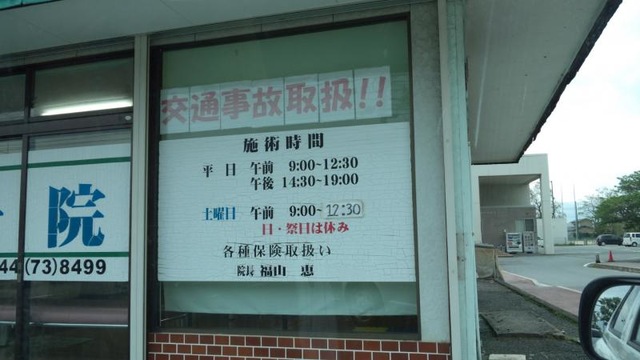 交通事故取扱!!
施術時間
平日 午前 9:00~12:30
午後 14:30~19:00
土曜日 午前 9:00~12:30
日・祭日は休み
各種保険取扱い
院長 福山 恵
院
44(73)8499